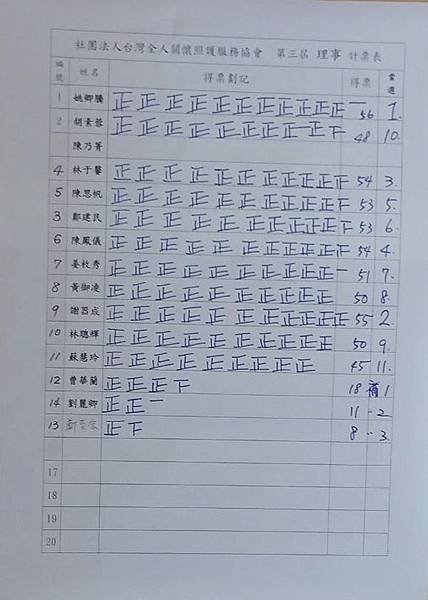 社團法人台灣全人關懷照護服務協會 第三屆 理事 計票表
編號 姓名 得票劃記 得票 當選
1 姚卿騰 正正正正正正正正正正正一 56 1.
2 胡素蓉 正正正正正正正正正下 48 10.
陳乃菁
4 林于馨 正正正正正正正正正正 54 3.
5 陳思帆 正正正正正正正正正正下 53 5.
3 鄭建民 正正正正正正正正正正下 53 6.
6 陳鳳儀 正正正正正正正正正正 54 4.
7 姜枚秀 正正正正正正正正正正一 51 7.
8 黃御凌 正正正正正正正正正正 50 8.
9 謝昌成 正正正正正正正正正正正 55 2.
10 林聰輝 正正正正正正正正正正 50 9.
11 蘇慧玲 正正正正正正正正正 45 11.
12 曾華蘭 正正正下 18 補1
14 劉麗卿 正正一 11 ..2
13 正下 8 ..3
17
18
19
20